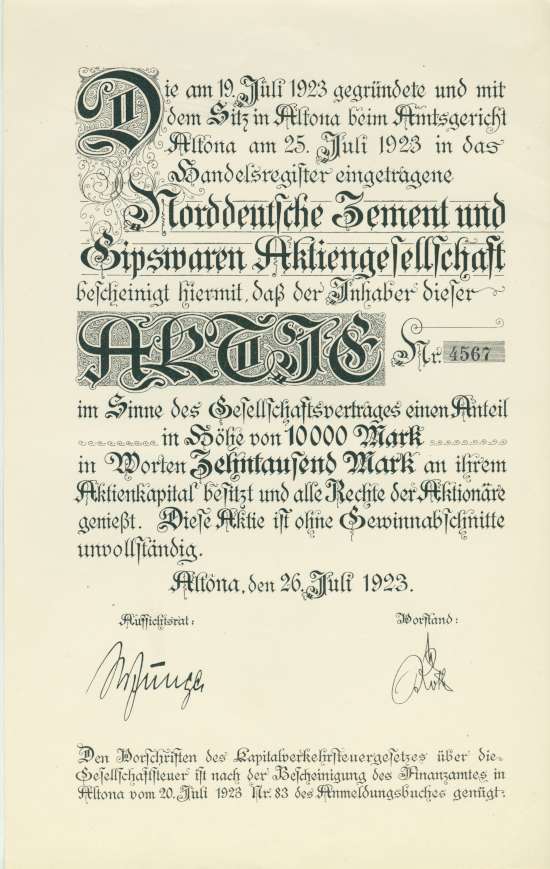 Die am 19. Juli 1923 gegründete und mit
dem Sitz in Altona beim Amtsgericht
Altona am 25. Juli 1923 in das
Handelsregister eingetragene
Norddeutsche Zement und
Gipswaren Aktiengesellschaft
bescheinigt hiermit, daß der Inhaber dieser
AKTIE Nr. 4567
im Sinne des Gesellschaftsvertrages einen Anteil
in Höhe von 10000 Mark
in Worten Zehntausend Mark an ihrem
Aktienkapital besitzt und alle Rechte der Aktionäre
genießt. Diese Aktie ist ohne Gewinnabschnitte
unvollständig.
Altona, den 26. Juli 1923.
Aufsichtsrat: Vorstand:
Den Vorschriften des Kapitalverkehrsteuergesetzes über die
Gesellschaftsteuer ist nach der Bescheinigung des Finanzamtes in
Altona vom 20. Juli 1923 Nr. 83 des Anmeldungsbuches genügt.